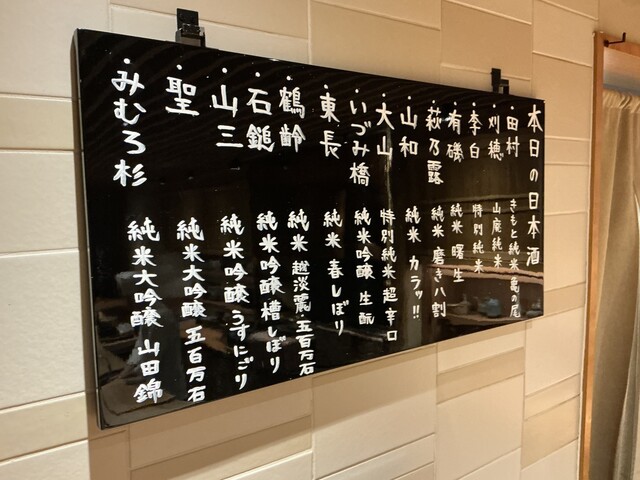 本日の日本酒
・田村 きもと純米 亀の尾
・刈穂 山廃純米
・李白 特別純米
・有磯 純米 曙 生
・萩乃露 純米 磨き八割
・山和 純米 カラッ!!
・大山 特別純米 超辛口
・いづみ橋 純米吟醸 生酛
・東長 純米 春しぼり
・鶴齢 純米 越淡麗・五百万石
・石鎚 純米吟醸 槽しぼり
・山三 純米吟醸 うすにごり
・聖 純米大吟醸 五百万石
・みむろ杉 純米大吟醸 山田錦